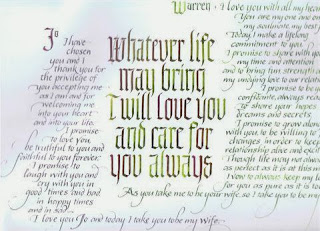 Jo
I have
chosen
you and I
thank you for
the privilege of
you accepting me
as I am and for
welcoming me
into your heart
and into your life.
I promise
to love you,
be truthful to you and
faithful to you forever.
I promise to
laugh with you and
cry with you in
good times and bad
in happy times
and in sad.
I love you Jo and today I take you to be my wife.
Whatever life
may bring
I will love you
and care for
you always
Warren I love you with all my hear
You are my one and on
my soulmate, my best
Today I make a lifelong
commitment to you
I promise to share with yo
my time and attention
and to bring fun strength an
my undying love to our relation
I promise to be you
confidante, always read
to share your hopes
dreams and secrets.
I promise to grow along
with you, to be willing to
changes, in order to keep
relationship alive and exci
Though life may not alway
as perfect as it is at this m
I vow to always keep my lo
for you as pure as it is tod
As you take me to be your wife, so I take you to be my